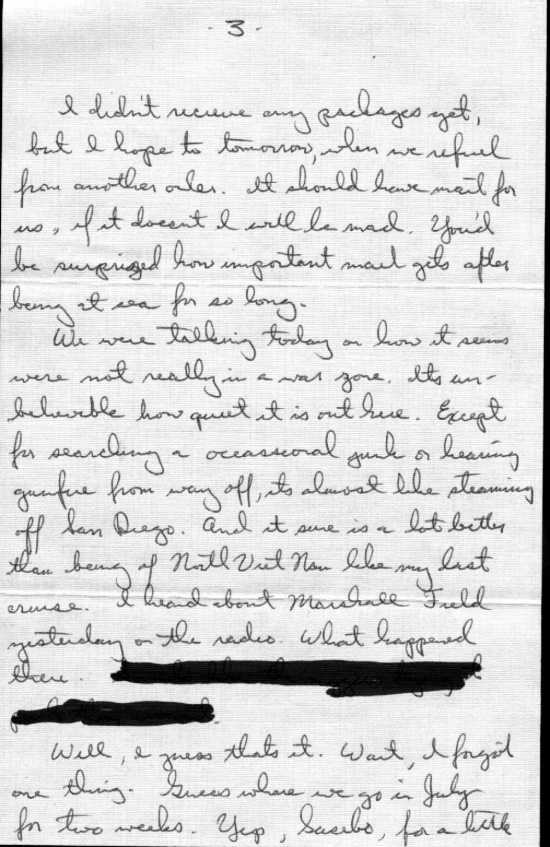 - 3 -
I didn't recieve any packages yet,
but I hope to tomorrow, when we refuel
from another oiler. It should have mail for
us, if it doesent I will be mad. You'd
be surprized how important mail gets after
being at sea for so long.
We were talking today on how it seems
were not really in a war zone. Its un-
believable how quiet it is out here. Except
for searching a occassional junk or hearing
gunfire from way off, its almost like steaming
off San Diego. And it sure is a lot better
than being off North Viet Nam like my last
cruise. I heard about Marshall Field
yesterday on the radio. What happened
there.
Well, I guess thats it. Wait, I forgot
one thing. Guess where we go in July
for two weeks. Yep, Sasebo, for a little